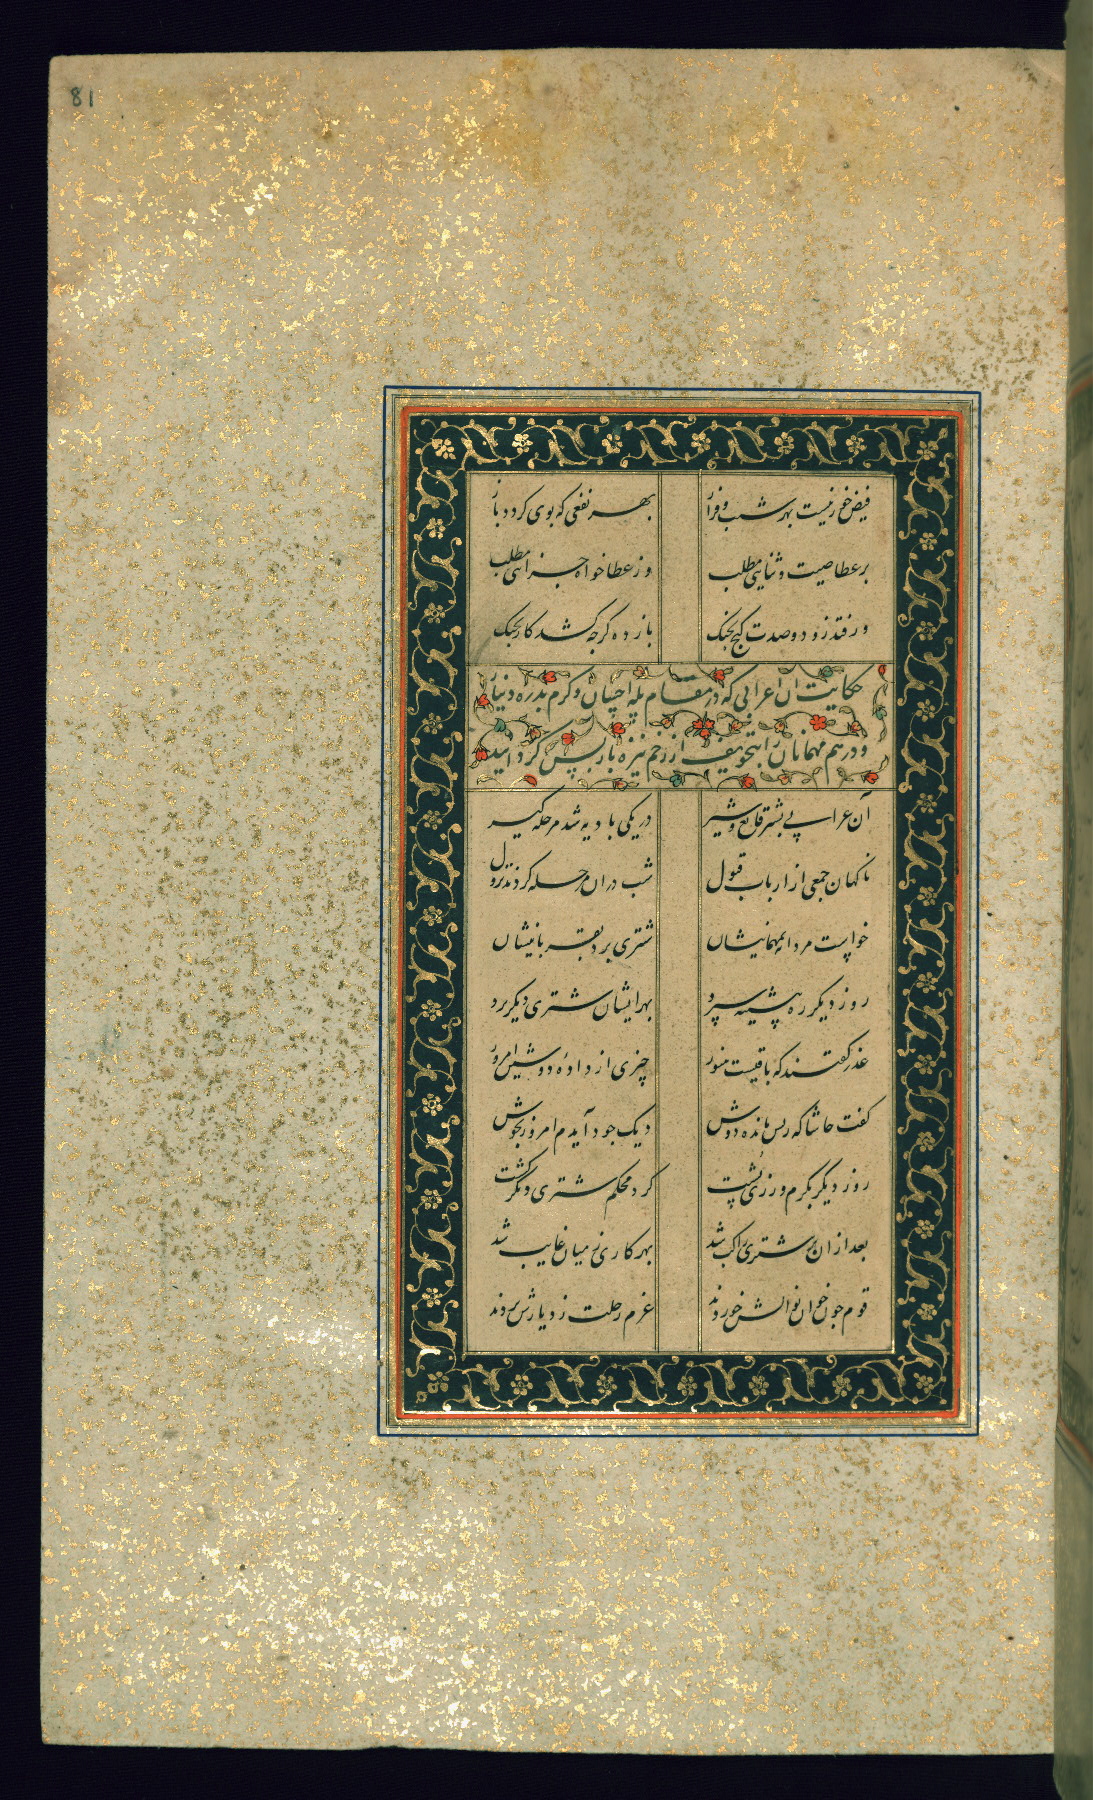 81
فیض خور نیست بهر شب و فراز بهر نفعی که بوی کردد باز
بر عطا صیت و ثنایی مطلب وز عطا خواه جزائی مطلب
ور فتد زود و صدت کنج بجنک باز ده کرچه کشد کار بجنک
حکایت آن اعرابی که در مقام احسان و کرم بدره دینار
و درهم مهمانان را بتخویف از زخم نیزه باز پس کردانید
آن عرابی بشتر قانع و شیر در یکی بادیه شد مرحله کیر
ناکهان جمعی از ارباب قبول شب در ان مرحله کردند نزول
خواست مردانه بمهمانیشان شتری برد بقربانیشان
روز دیکر ره پیشینه سپرد بهر ایشان شتری دیکر برد
عذر کفتند که باقیست هنوز چیزی از دادهٔ دوشین امروز
کفت حاشا که ز پس ماندهٔ دوش دیک جود آیدم امروز بجوش
روز دیکر بکرم ورزی پشت کرد محکم شتری دیکر کشت
بعد از ان بر شتری راکب شد بهر کاری ز میان غایب شد
قوم چون خوان نوالش خوردند عزم رحلت ز دیارش بردند